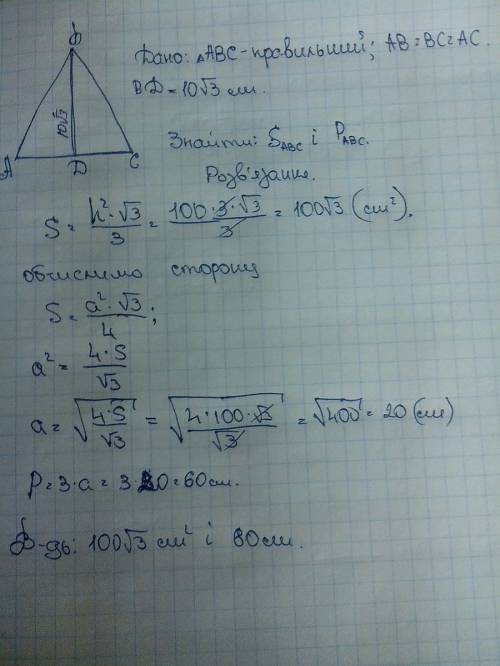 B
10√3
A D C
Дано: △ABC - правильний; AB = BC = AC.
BD = 10√3 см.
Знайти: S_ABC і P_ABC.
Розв'язание.
S = h²·√3/3 = 100·3·√3/3 = 100√3 (см²).
обчислимо сторону
S = a²·√3/4;
a² = 4·S/√3
a = √(4·S/√3) = √(4·100·√3/√3) = √400 = 20 (см)
P = 3·a = 3·20 = 60см.
В-дь: 100√3 см² і 60см.